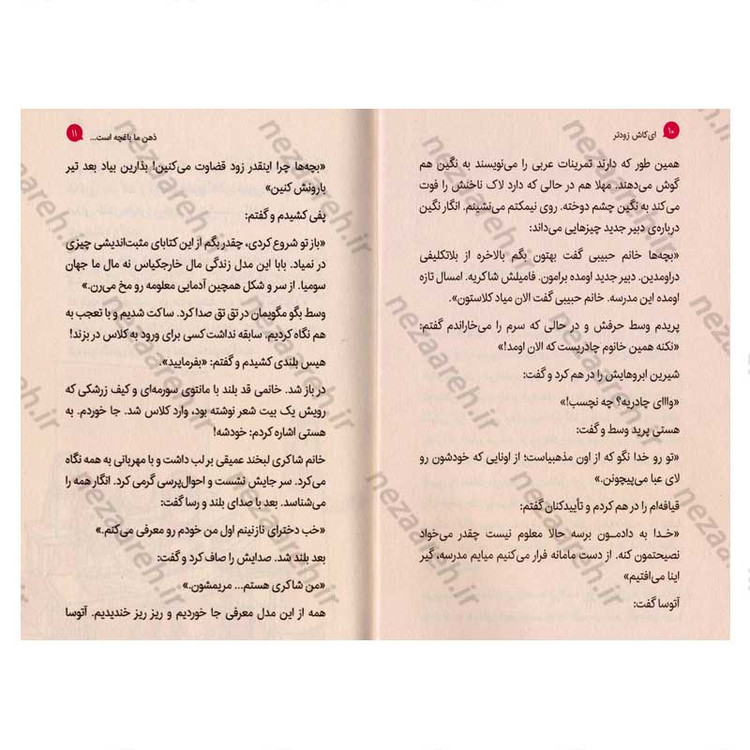 ۱۰ ای‌کاش زودتر
همین طور که دارند تمرینات عربی را می‌نویسند به نگین هم
گوش می‌دهند. مهلا هم در حالی که دارد لاک ناخنش را فوت
می‌کند به نگین چشم دوخته. روی نیمکتم می‌نشینم. انگار نگین
درباره‌ی دبیر جدید چیزهایی می‌داند:
«بچه‌ها خانم حبیبی گفت بهتون بگم بالاخره از بلاتکلیفی
دراومدین. دبیر جدید اومده برامون. فامیلش شاکریه. امسال تازه
اومده این مدرسه. خانم حبیبی گفت الان میاد کلاستون».
پریدم وسط حرفش و در حالی که سرم را می‌خاراندم گفتم:
«نکنه همین خانوم چادریست که الان اومد!»
شیرین ابروهایش را در هم کرد و گفت:
«وااای چادریه؟ چه نچسب!»
هستی پرید وسط و گفت:
«تو رو خدا نگو که از اون مذهبیاست؛ از اونایی که خودشون رو
لای عبا می‌پیچونن.»
قیافه‌ام را در هم کردم و تأییدکنان گفتم:
«خـدا به دادمـون برسه حالا معلوم نیست چقدر می‌خواد
نصیحتمون کنه. از دست مامانه فرار می‌کنیم میایم مدرسه، گیر
اینا می‌افتیم»
آتوسا گفت:
ذهن ما باغچه است... ۱۱
«بچه‌ها چرا اینقدر زود قضاوت می‌کنین! بذارین بیاد بعد تیر
بارونش کنین»
پفی کشیدم و گفتم:
«باز تو شروع کردی، چقدر بگم از این کتابای مثبت‌اندیشی چیزی
در نمیاد. بابا این مدل زندگی مال خارجکیاس نه مال ما جهان
سومیا. از سر و شکل همچین آدمایی معلومه رو مخ می‌رن.»
وسط بگو مگویمان در تق تق صدا کرد. ساکت شدیم و با تعجب به
هم نگاه کردیم. سابقه نداشت کسی برای ورود به کلاس در بزند!
هیس بلندی کشیدم و گفتم: «بفرمایید».
در باز شد. خانمی قد بلند با مانتوی سورمه‌ای و کیف زرشکی که
رویش یک بیت شعر نوشته بود، وارد کلاس شد. جا خوردم. به
هستی اشاره کردم: خودشه!
خانم شاکری لبخند عمیقی بر لب داشت و با مهربانی به همه نگاه
می‌کرد. سر جایش نشست و احوال‌پرسی گرمی کرد. انگار همه را
می‌شناسد. بعد با صدای بلند و رسا گفت:
«خب دخترای نازنینم اول من خودم رو معرفی می‌کنم.»
بعد بلند شد. صدایش را صاف کرد و گفت:
«من شاکری هستم... مریمشون.»
همه از این مدل معرفی جا خوردیم و ریز ریز خندیدیم. آتوسا
nezaareh.ir